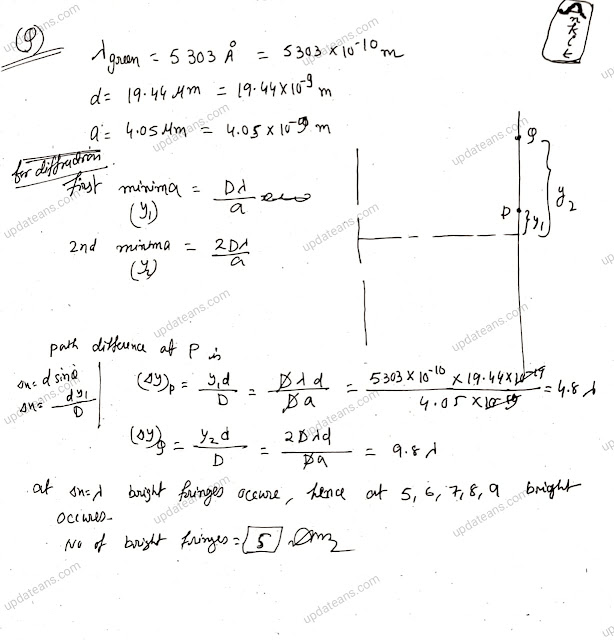 Q
λ green = 5303 Å = 5303×10⁻¹⁰ m
d = 19.44 μm = 19.44×10⁻⁹ m
a = 4.05 μm = 4.05×10⁻⁹ m
for diffraction
first minima = Dλ/a
(y₁)
2nd minima = 2Dλ/a
(y₂)
Q
P
y₁
y₂
path difference at P is
Δx = d sinθ
Δx = dy₁/D
(Δy)P = y₁d/D = Dλd/Da = 5303×10⁻¹⁰ × 19.44×10⁻⁹/4.05×10⁻⁹ = 4.8λ
(Δy)Q = y₂d/D = 2Dλd/Da = 9.8λ
at Δx=λ bright fringes occure, hence at 5, 6, 7, 8, 9 bright
occures.
No of bright fringes = 5
updateans.com